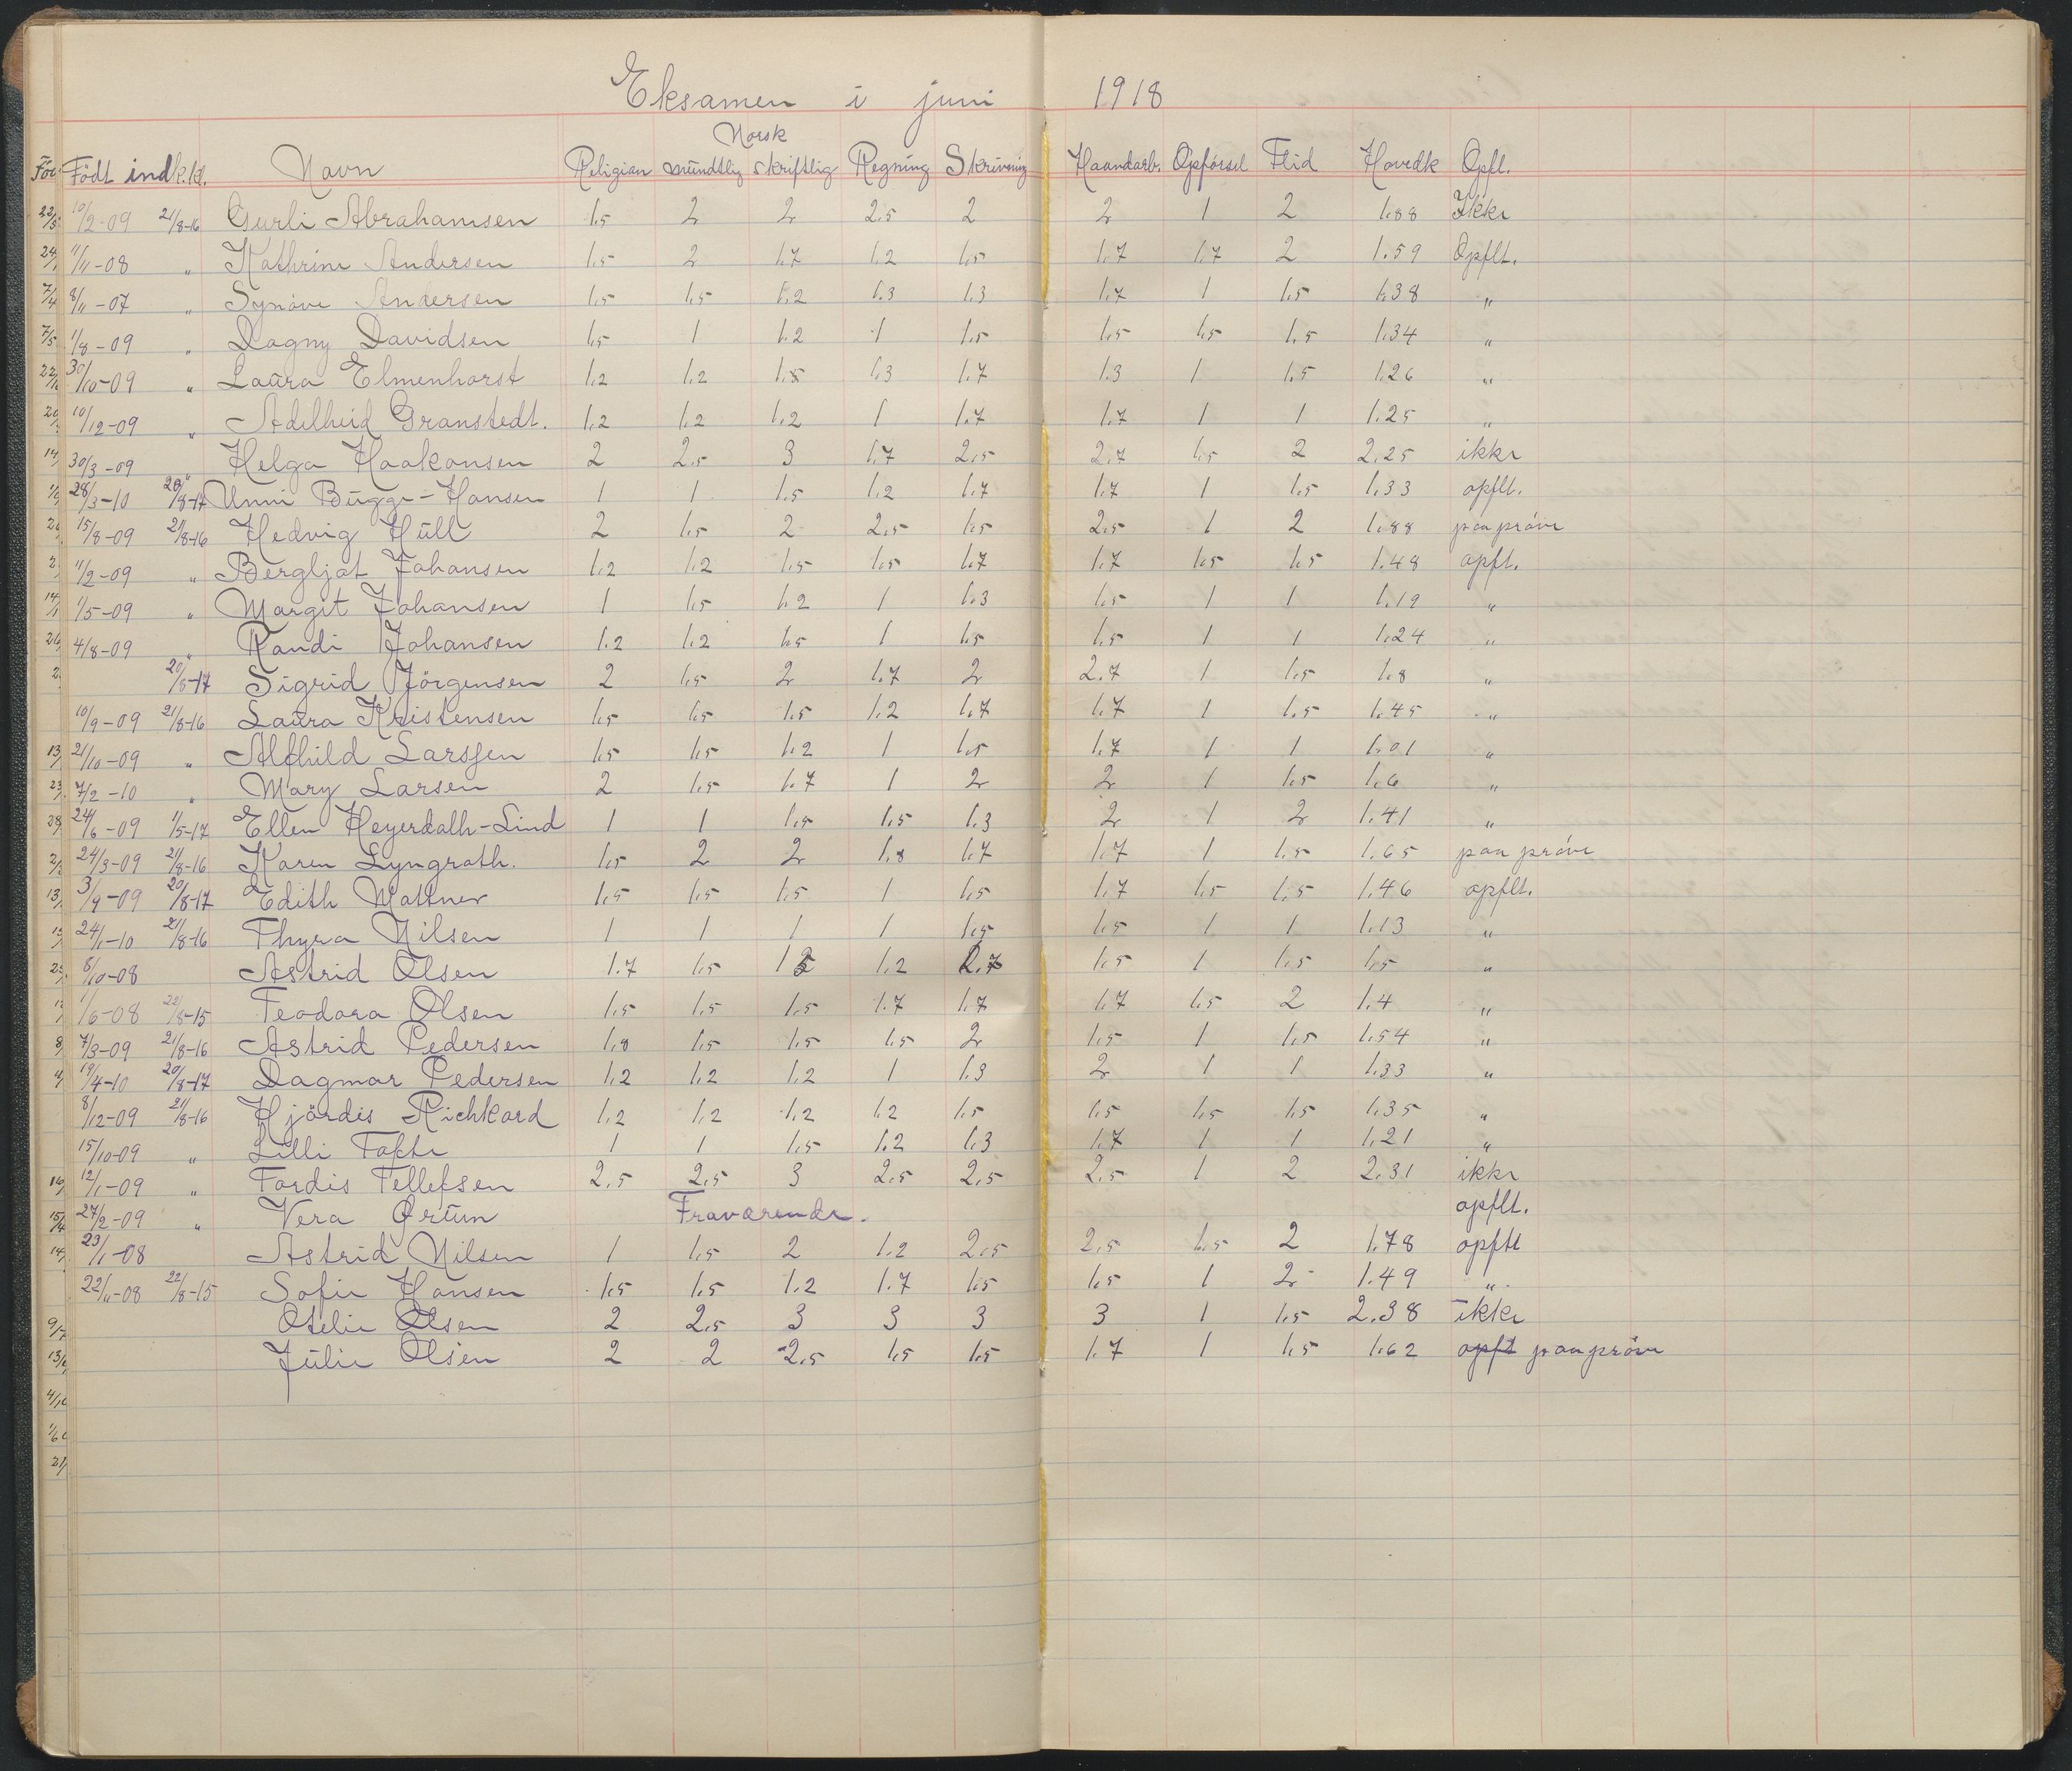 Eksamen i juni 1918
Norsk
Födt indk.kl. Navn Religion mündtlig skriftlig Regning Skrivning Haandarb. Opförsel Flid Hovedk Opfl.
10/2-09 21/8-16 Gurli Abrahamsen 1.5 2 2 2.5 2 2 1 2 1.88 Ikke
11/11-08 " Kathrine Andersen 1.5 2 1.7 1.2 1.5 1.7 1.7 2 1.59 Opflt.
8/11-07 " Synöve Andersen 1.5 1.5 1.2 1.3 1.3 1.7 1 1.5 1.38 "
1/8-09 " Dagny Davidsen 1.5 1 1.2 1 1.5 1.5 1.5 1.5 1.34 "
30/10-09 " Laura Elmenhorst 1.2 1.2 1.5 1.3 1.7 1.3 1 1.5 1.26 "
10/12-09 " Adelheid Granstedt. 1.2 1.2 1.2 1 1.7 1.7 1 1 1.25 "
30/3-09 " Helga Haakonsen 2 2.5 3 1.7 2.5 2.7 1.5 2 2.25 ikke
28/3-10 20/8-17 Unni Bugge-Hansen 1 1 1.5 1.2 1.7 1.7 1 1.5 1.33 opflt.
15/8-09 21/8-16 Hedvig Hüll 2 1.5 2 2.5 1.5 2.5 1 2 1.88 paa pröve
11/2-09 " Bergljot Johansen 1.2 1.2 1.5 1.5 1.7 1.7 1.5 1.5 1.48 opfl.
1/5-09 " Margit Johansen 1 1.5 1.2 1 1.3 1.5 1 1 1.19 "
4/8-09 " Randi Johansen 1.2 1.2 1.5 1 1.5 1.5 1 1 1.24 "
20/8-17 Sigrid Jörgensen 2 1.5 2 1.7 2 2.7 1 1.5 1.8 "
10/9-09 21/8-16 Laura Kristensen 1.5 1.5 1.5 1.2 1.7 1.7 1 1.5 1.45 "
21/10-09 " Alfhild Larssen 1.5 1.5 1.2 1 1.5 1.7 1 1 1.01 "
7/2-10 " Mary Larsen 2 1.5 1.7 1 2 2 1 1.5 1.6 "
24/6-09 1/5-17 Ellen Heyerdalh-Lind 1 1 1.5 1.5 1.3 2 1 2 1.41 "
24/3-09 21/8-16 Karen Lyngroth. 1.5 2 2 1.8 1.7 1.7 1 1.5 1.65 paa pröve
3/9-09 20/8-17 Edith Mattner 1.5 1.5 1.5 1 1.5 1.7 1.5 1.5 1.46 opflt.
24/1-10 21/8-16 Thyra Nilsen 1 1 1 1 1.5 1.5 1 1 1.13 "
8/10-08 Astrid Olsen 1.7 1.5 1.2 1.7 1.5 1 1.5 1.5 "
1/6-08 22/8-15 Teodora Olsen 1.5 1.5 1.5 1.7 1.7 1.7 1.5 2 1.4 "
7/3-09 21/8-16 Astrid Pedersen 1.8 1.5 1.5 1.5 2 1.5 1 1.5 1.54 "
19/4-10 20/8-17 Dagmar Pedersen 1.2 1.2 1.2 1 1.3 2 1 1 1.33 "
8/12-09 21/8-16 Hjördis Richkard 1.2 1.2 1.2 1.2 1.5 1.5 1.5 1.5 1.35 "
15/10-09 " Lilli Tofte 1 1 1.5 1.2 1.3 1.7 1 1 1.21 "
12/1-09 " Tordis Tellefsen 2.5 2.5 3 2.5 2.5 2.5 1 2 2.31 ikke
27/2-09 " Vera Ørtün Fraværende. opflt.
23/1-08 Astrid Nilsen 1 1.5 2 1.2 2.5 2.5 1.5 2 1.78 opflt
22/11-08 22/8-15 Sofie Hansen 1.5 1.5 1.2 1.7 1.5 1.5 1 2 1.49 "
Otelie Olsen 2 2.5 3 3 3 3 1 1.5 2.38 ikke
Julie Olsen 2 2 2.5 1.5 1.5 1.7 1 1.5 1.62 opft paa pröve